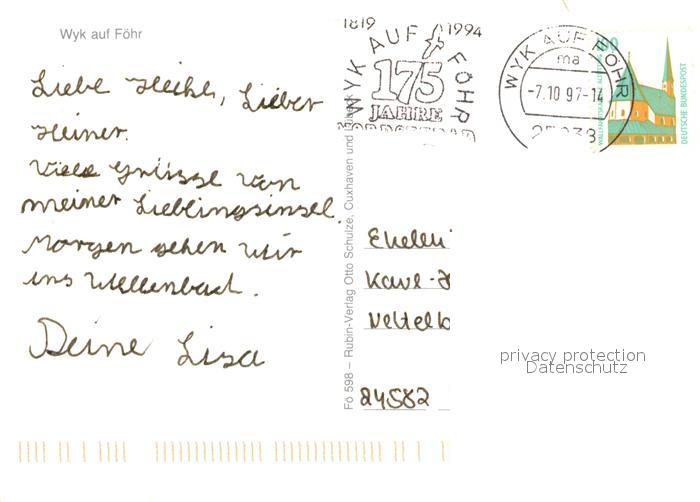 Wyk auf Föhr
1819 1994
WYK AUF FÖHR
175
JAHRE
NORDSEEBAD
WYK AUF FÖHR
ma
-7.10 97-14
DEUTSCHE BUNDESPOST
Liebe Heike, Lieber
Heiner.
Viele Grüsse von
meiner Lieblingsinsel.
Morgen gehen wir
ins Wellenbad.
Deine Lisa
Fö 598 – Rubin-Verlag Otto Schulze, Cuxhaven und
24582
privacy protection
Datenschutz